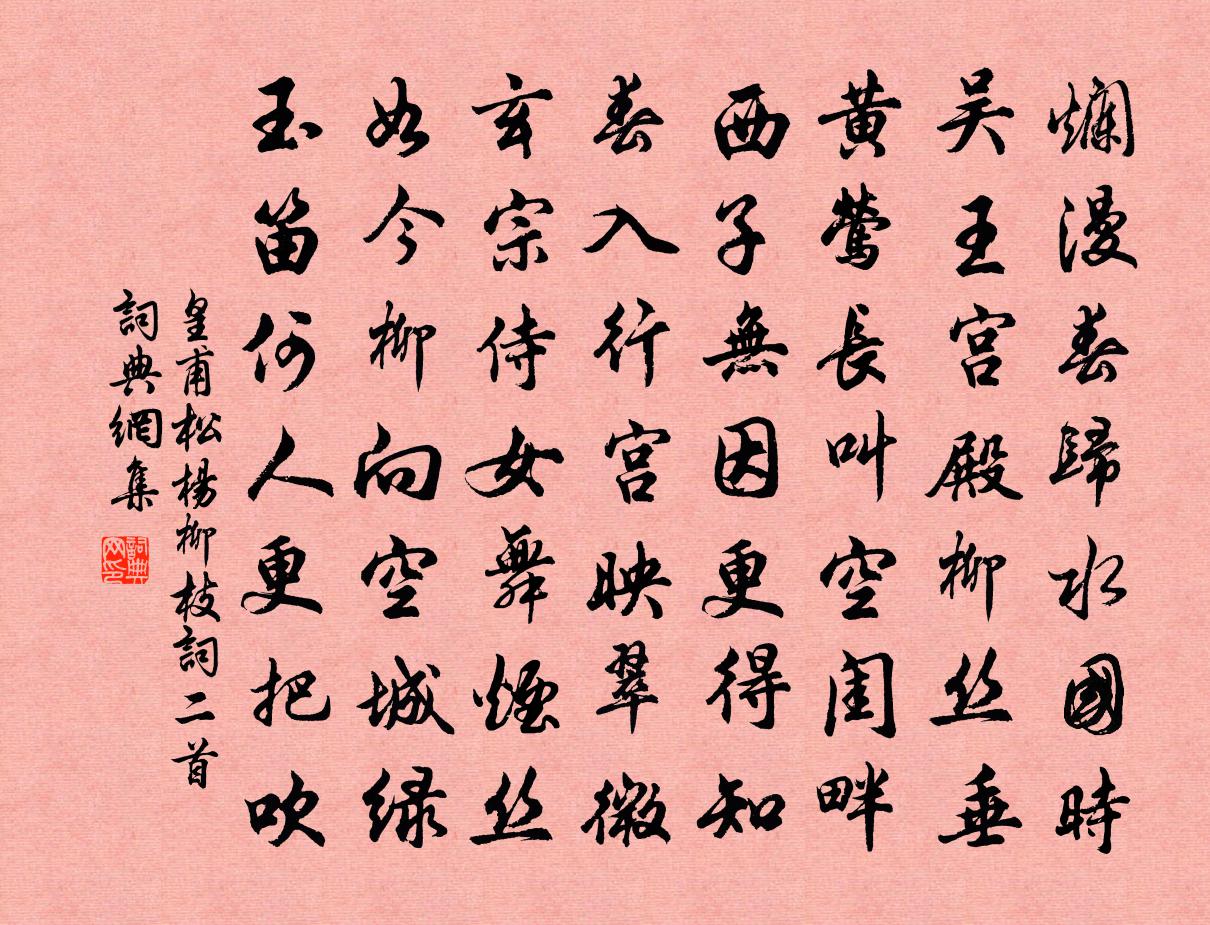 爛漫春歸水國時
吴王宫殿柳丝垂
黄鶯長叫空闺畔
西子無因更得知
春入行宫映翠微
玄宗侍女舞煙丝
如今柳向空城緑
玉笛何人更把吹
皇甫松楊柳枝詞二首
詞典網集
詞典網印